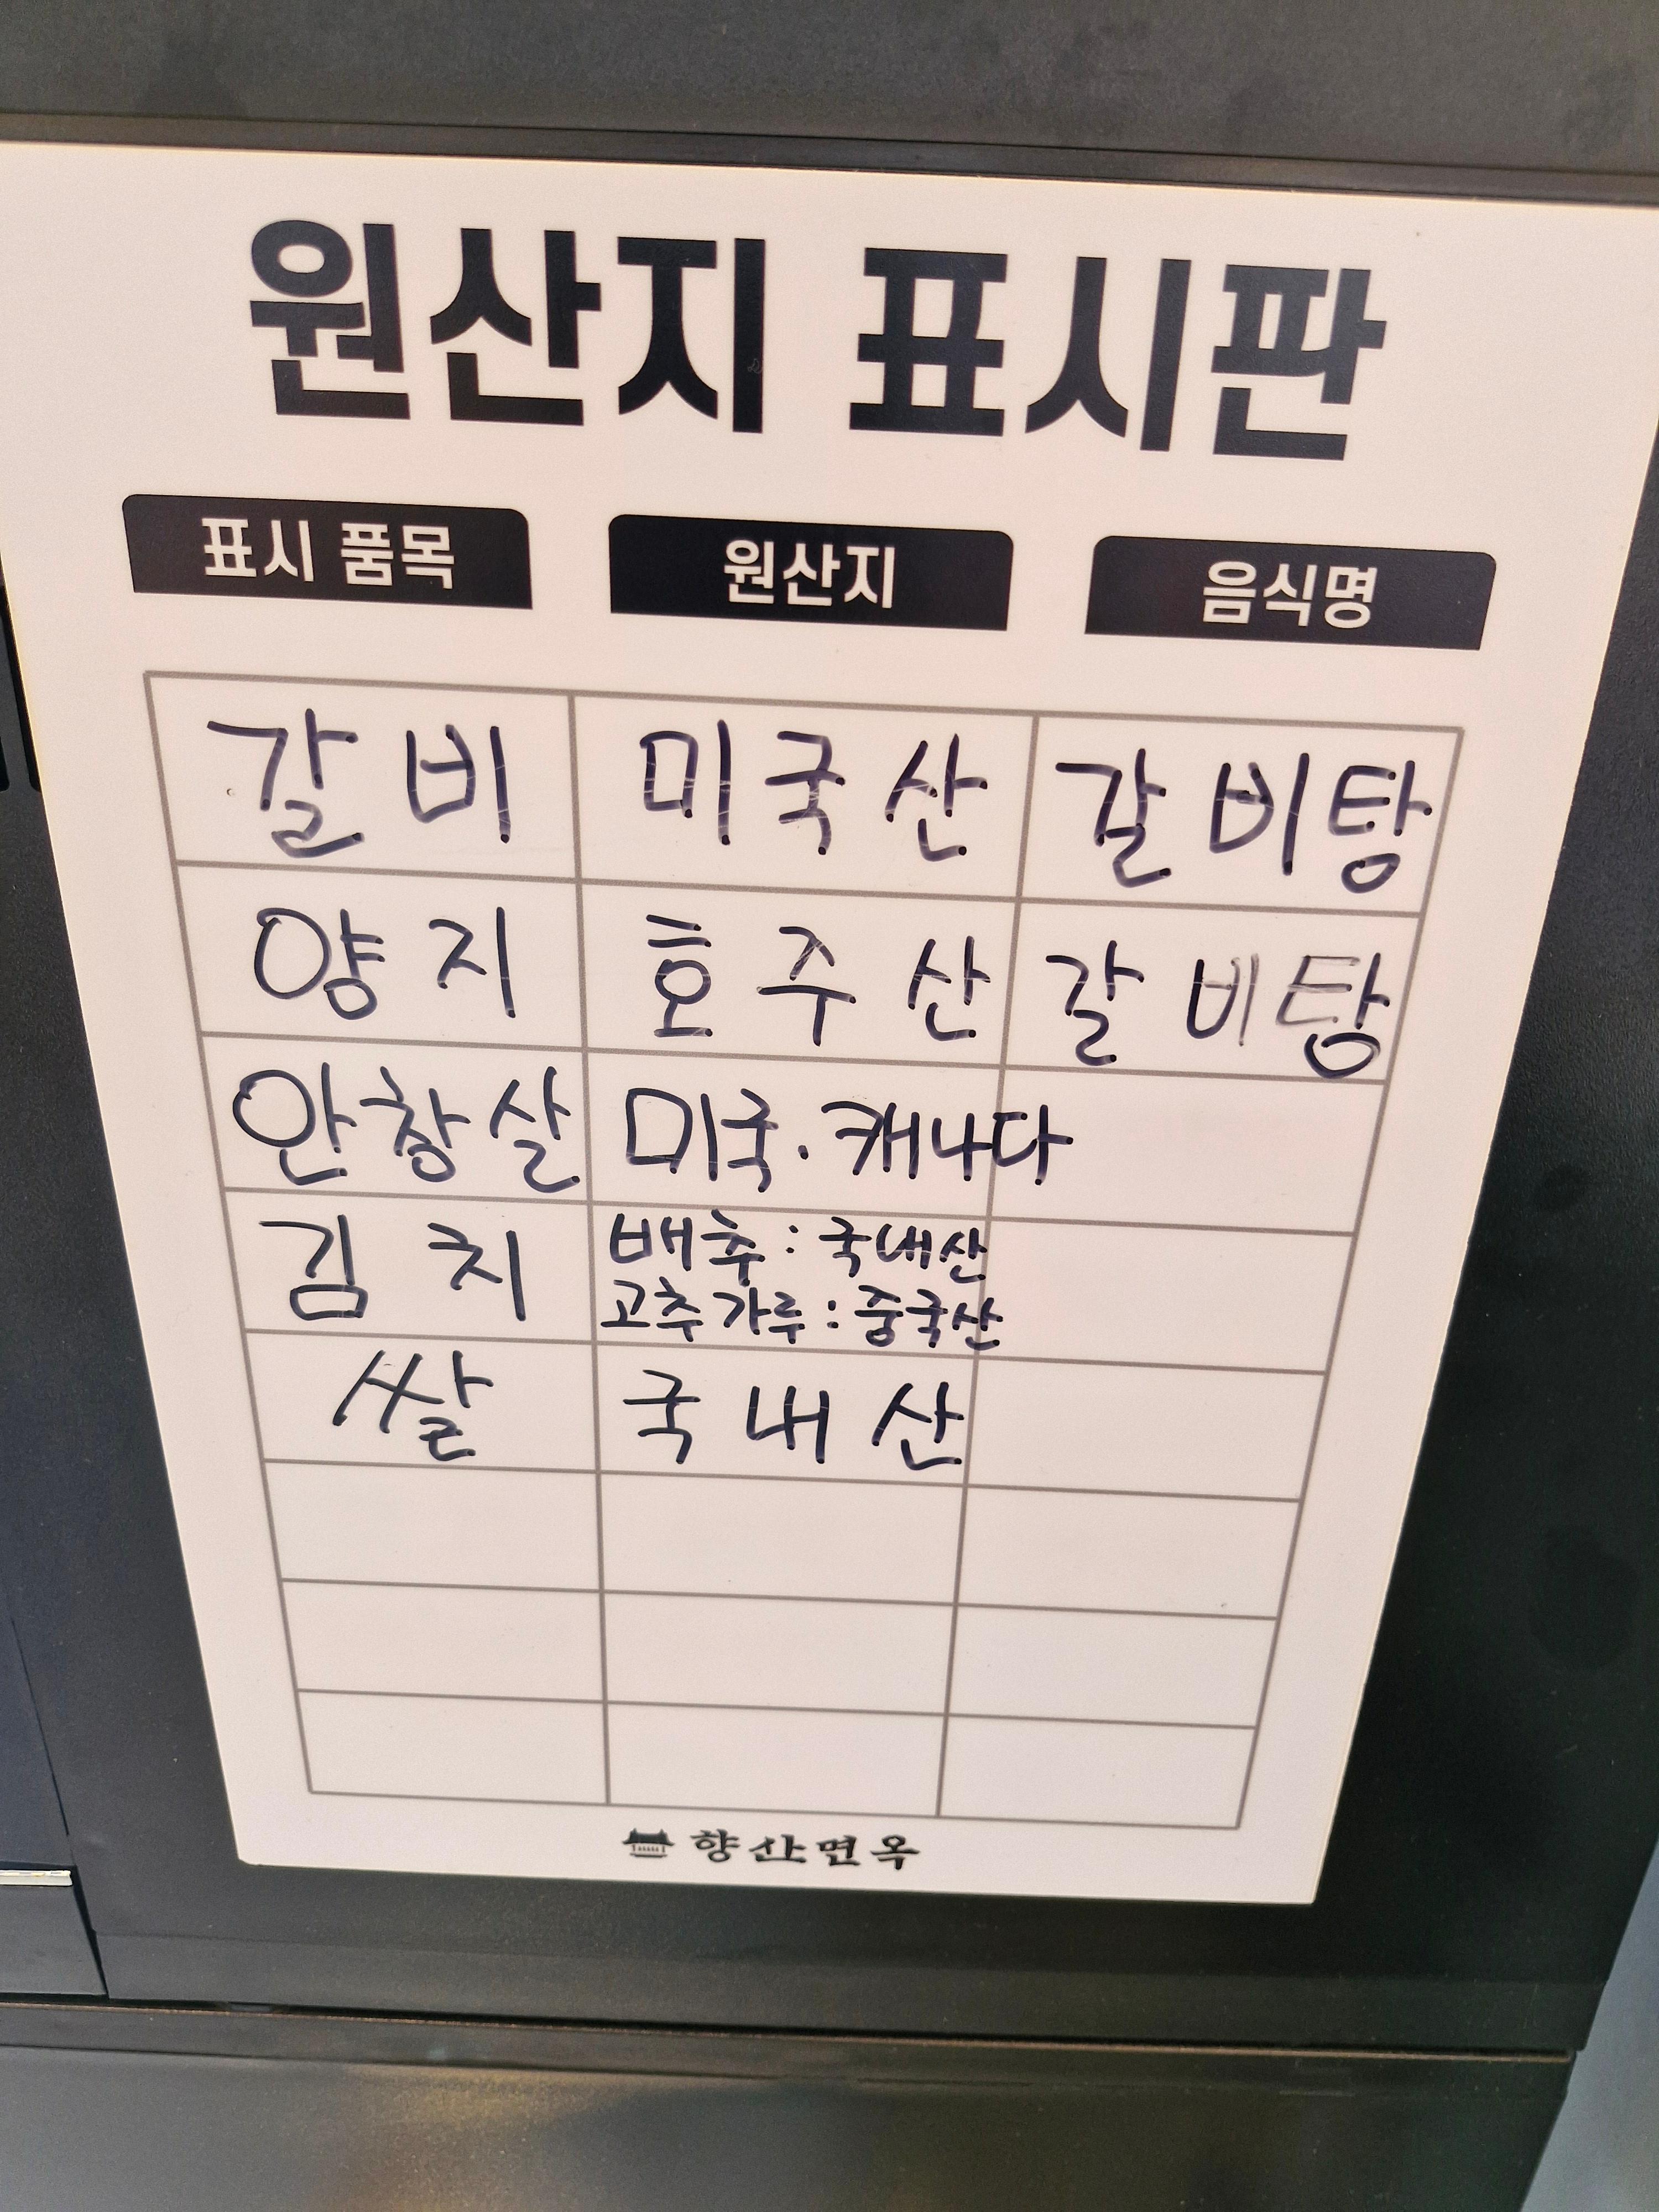 원산지 표시판
표시 품목 원산지 음식명
갈비 미국산 갈비탕
양지 호주산 갈비탕
안창살 미국·캐나다
김치 배추:국내산
고추가루:중국산
쌀 국내산
향산면옥